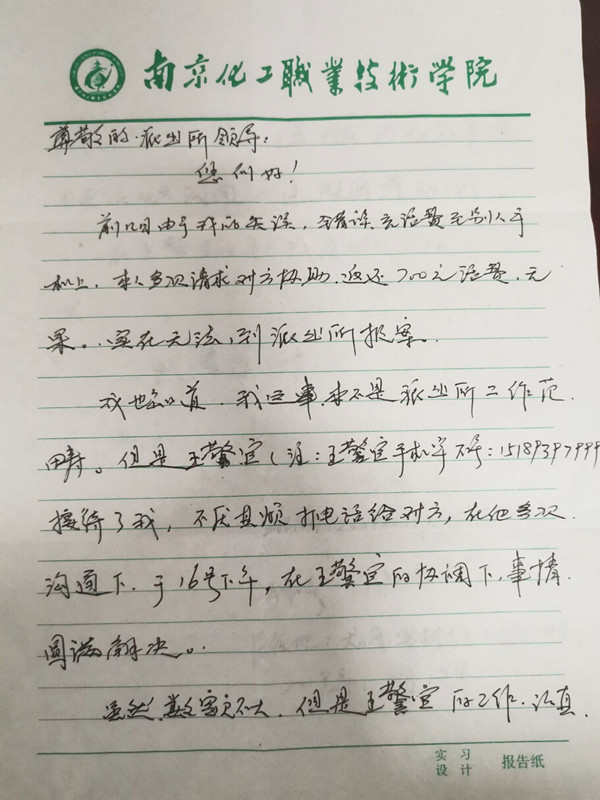 南京化工職業技術学院
尊敬的派出所领导：
您们好！
前几日由于我的失误，至错误充话费至别人手
机上，本人多次请求对方协助，返还700元话费，无
果。实在无法，到派出所报案。
我也知道，我这事，本不是派出所工作范
畴。但是王警官（注：王警官手机字不号：15189397999
接待了我，不厌其烦打电话给对方，在他多次
沟通下，于16号下午，在王警官的协调下，事情
圆满解决。
虽然，数字不大，但是王警官的工作，认真
实习
设计
报告纸